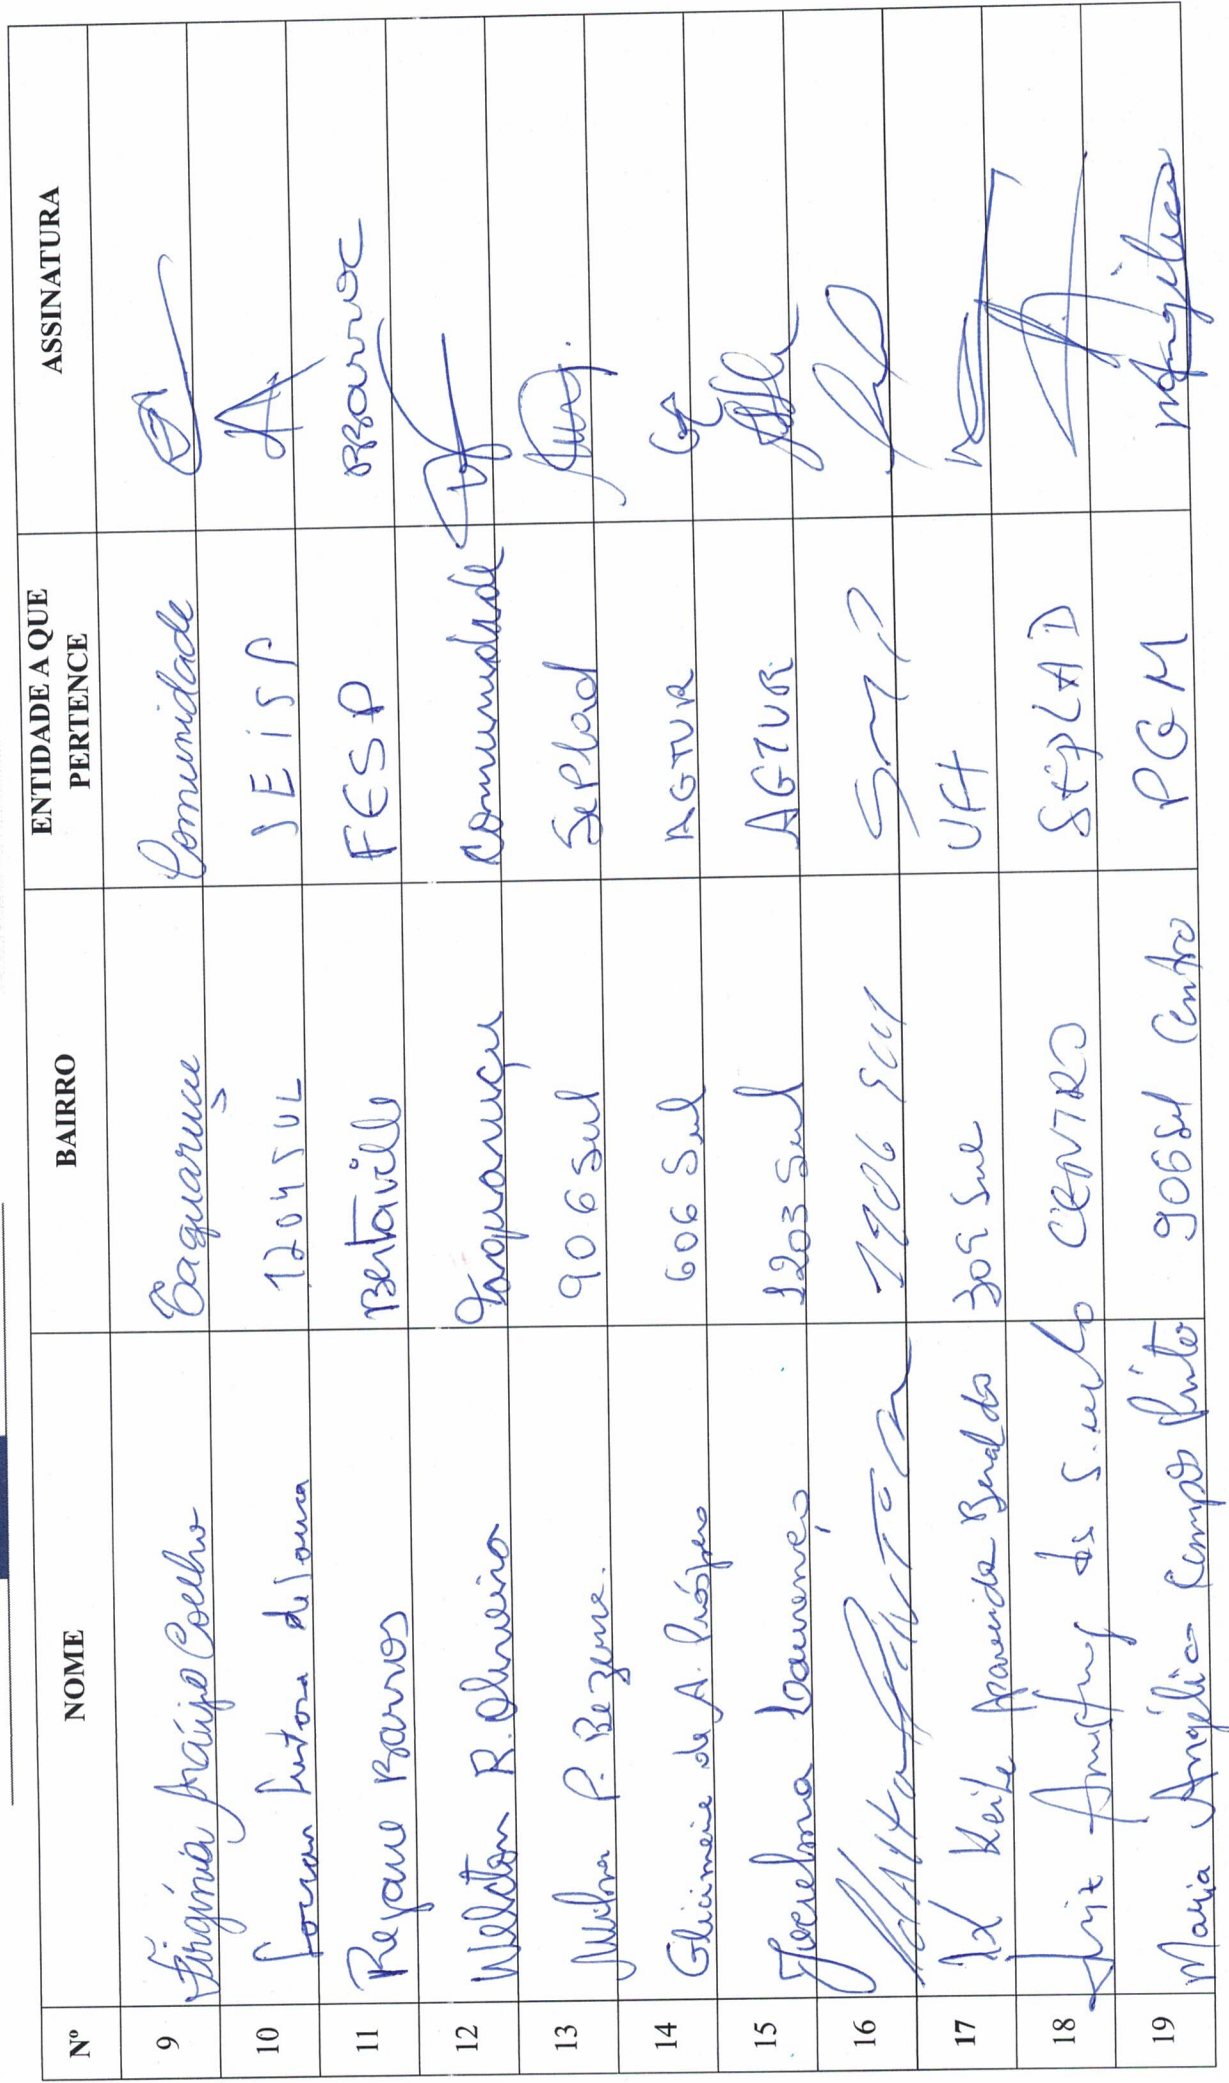 Nº NOME BAIRRO ENTIDADE A QUE PERTENCE ASSINATURA
9 Virgínia Araújo Coelho Taquaruçu Comunidade
10 de Souza 1204 SUL SEISP
11 Rejane Barros Bertaville FESP RBarros
12 Welton R. Oliveira Taquaruçu Comunidade
13 P. Bezerra. 906 Sul SePlad
14 Glicimeire de A. Próspero 606 Sul AGTUR
15 Joselma Lourenço 1203 Sul AGTUR
16 1906 Sul
17 Keile Aparecida Beraldo 309 Sul UFT
18 Luiz CENTRO SEPLAD
19 Maria Angélica Campos Pinto 906 Sul Centro PGM MAngélica